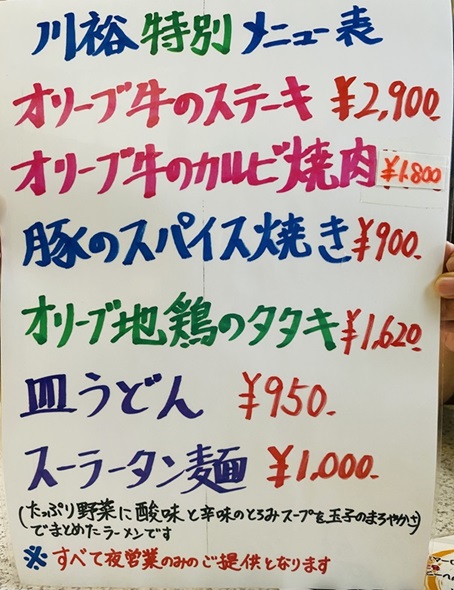 川裕特別メニュー表
オリーブ牛のステーキ ¥2,900
オリーブ牛のカルビ焼肉 ¥1,800
豚のスパイス焼き ¥900-
オリーブ地鶏のタタキ ¥1,620
皿うどん ¥950-
スーラータン麺 ¥1,000-
(たっぷり野菜に酸味と辛味のとろみスープを玉子のまろやかさ)
でまとめたラーメンです
※すべて夜営業のみのご提供となります